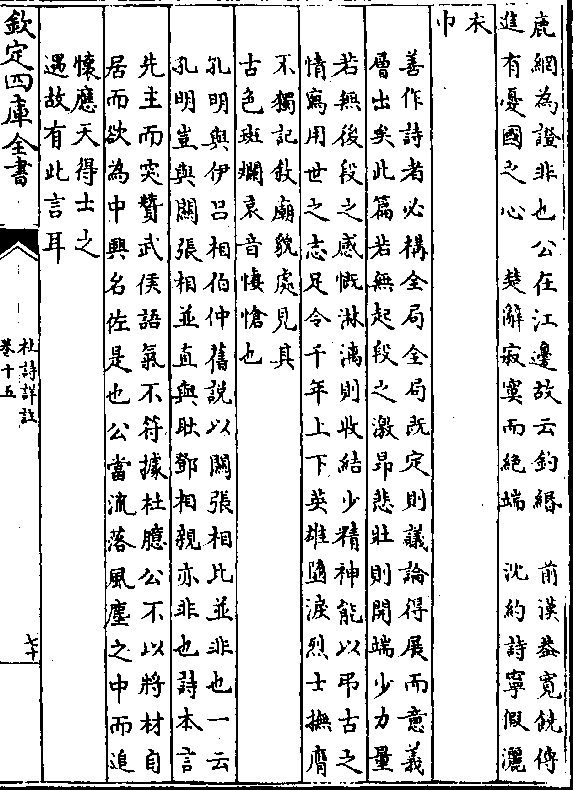 鹿網為證非也公在江邊故云釣緡　前漢葢寛饒傳
進有憂國之心　楚辭寂寞而絶端　沈約詩寧假灑
衣
巾
善作詩者必構全局全局既定則議論得展而意義
層出矣此篇若無起段之激昂悲壯則開端少力量
若無後段之感慨淋漓則收結少精神能以弔古之
情寫用世之志足令千年上下英雄墮淚烈士撫膺
不獨記敘廟貌處見其
古色斑斕哀音悽愴也
孔明與伊呂相伯仲舊說以關張相比並非也一云
孔明豈與關張相並直與耿鄧相親亦非也詩本言
先主而突贊武侯語氣不符據杜臆公不以將材自
居而欲為中興名佐是也公當流落風塵之中而追
懷應天得士之
遇故有此言耳
欽定四庫全書
杜詩詳註
卷十五
七十